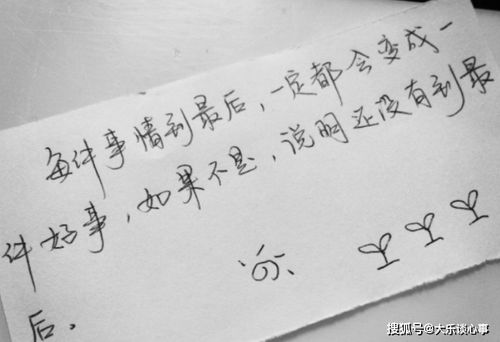 每件事情到最后，一定都会变成一
件好事，如果不是，说明还没有到最
后.
搜狐号@大乐谈心事